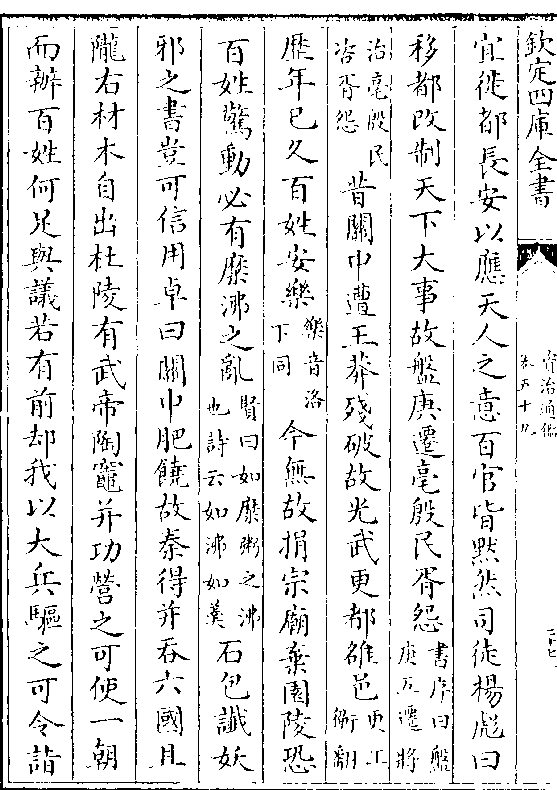 欽定四庫全書
資治通鑑
卷五十九
宜徙都長安以應天人之意百官皆黙然司徒楊彪曰
移都改制天下大事故盤庚遷亳殷民胥怨書序曰盤庚五遷將
治亳殷民咨胥怨昔關中遭王莽殘破故光武更都雒邑更工衡翻
歴年已久百姓安樂樂音洛下同今無故捐宗廟棄園陵恐
百姓驚動必有糜沸之亂賢曰如糜粥之沸也詩云如沸如羮石包䜟妖
邪之書豈可信用卓曰關中肥饒故秦得并吞六國且
隴右材木自出杜陵有武帝陶竈并功營之可使一朝
而辦百姓何足與議若有前却我以大兵驅之可令詣